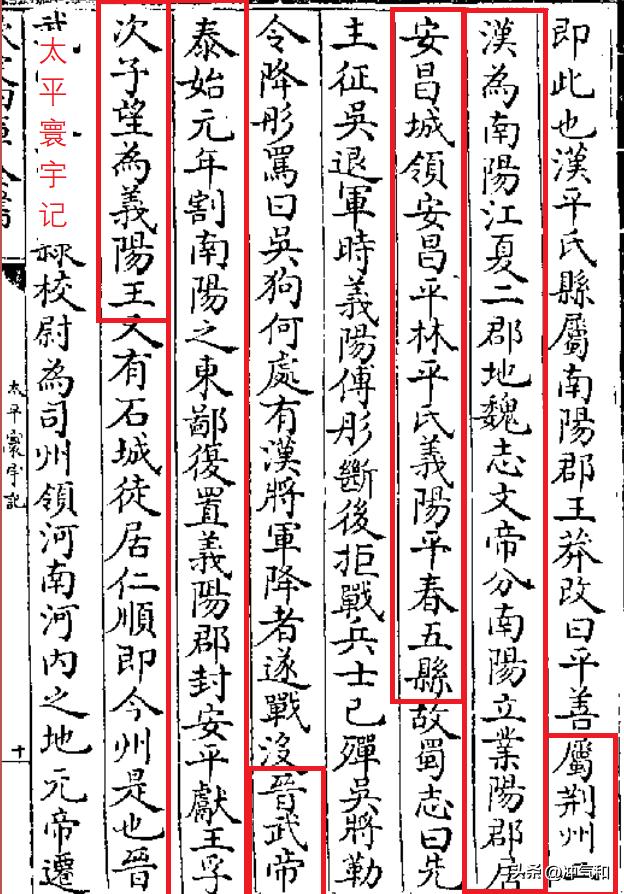 即此也漢平氏縣屬南陽郡王莽改曰平善屬荆州
漢為南陽江夏二郡地魏志文帝分南陽立業陽郡居
安昌城領安昌平林平氏義陽平春五縣故蜀志曰先
主征吳退軍時義陽傅肜斷後拒戰兵士已殫吳將勒
令降肜罵曰吳狗何處有漢將軍降者遂戰沒晉武帝
泰始元年割南陽之東鄙復置義陽郡封安平獻王孚
次子望為義陽王又有石城徒居仁順即今州是也晉
武
太平寰宇记
校尉為司州領河南河内之地元帝遷
太平寰宇記
十
头条 @冲气和